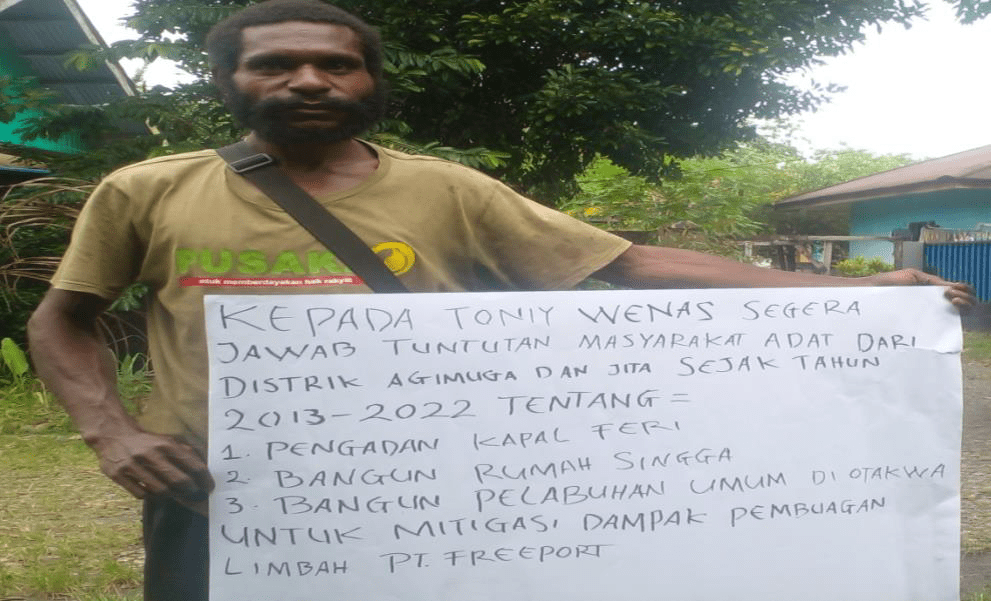 PUSAK
untuk memberdayakan hak rakyat
KEPADA TONIY WENAS SEGERA
JAWAB TUNTUTAN MASYARAKAT ADAT DARI
DISTRIK AGIMUGA DAN JITA SEJAK TAHUN
2013-2022 TENTANG =
1. PENGADAN KAPAL FERI
2. BANGUN RUMAH SINGGA
3. BANGUN PELABUHAN UMUM DI OTAKWA
UNTUK MITIGASI DAMPAK PEMBUAGAN
LIMBAH PT. FREEPORT